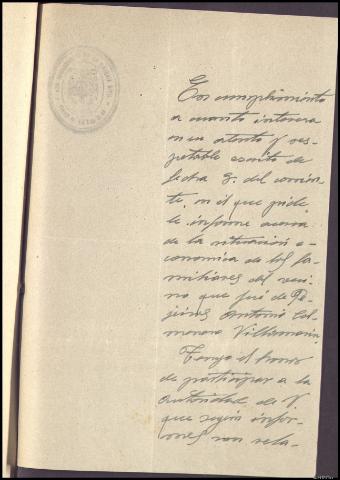 En cumplimiento
a cuanto interesa
en su atento y res-
petable escrito de
fecha 8 del corrien-
te, en el que pide
le informe acerca
de la situación e-
conomica de los fa-
miliares del veci-
no que fué de
Antonio Col-
menero Villamarin,
Tengo el honor
de participar a la
autoridad de V
que según infor-
mes son rela-